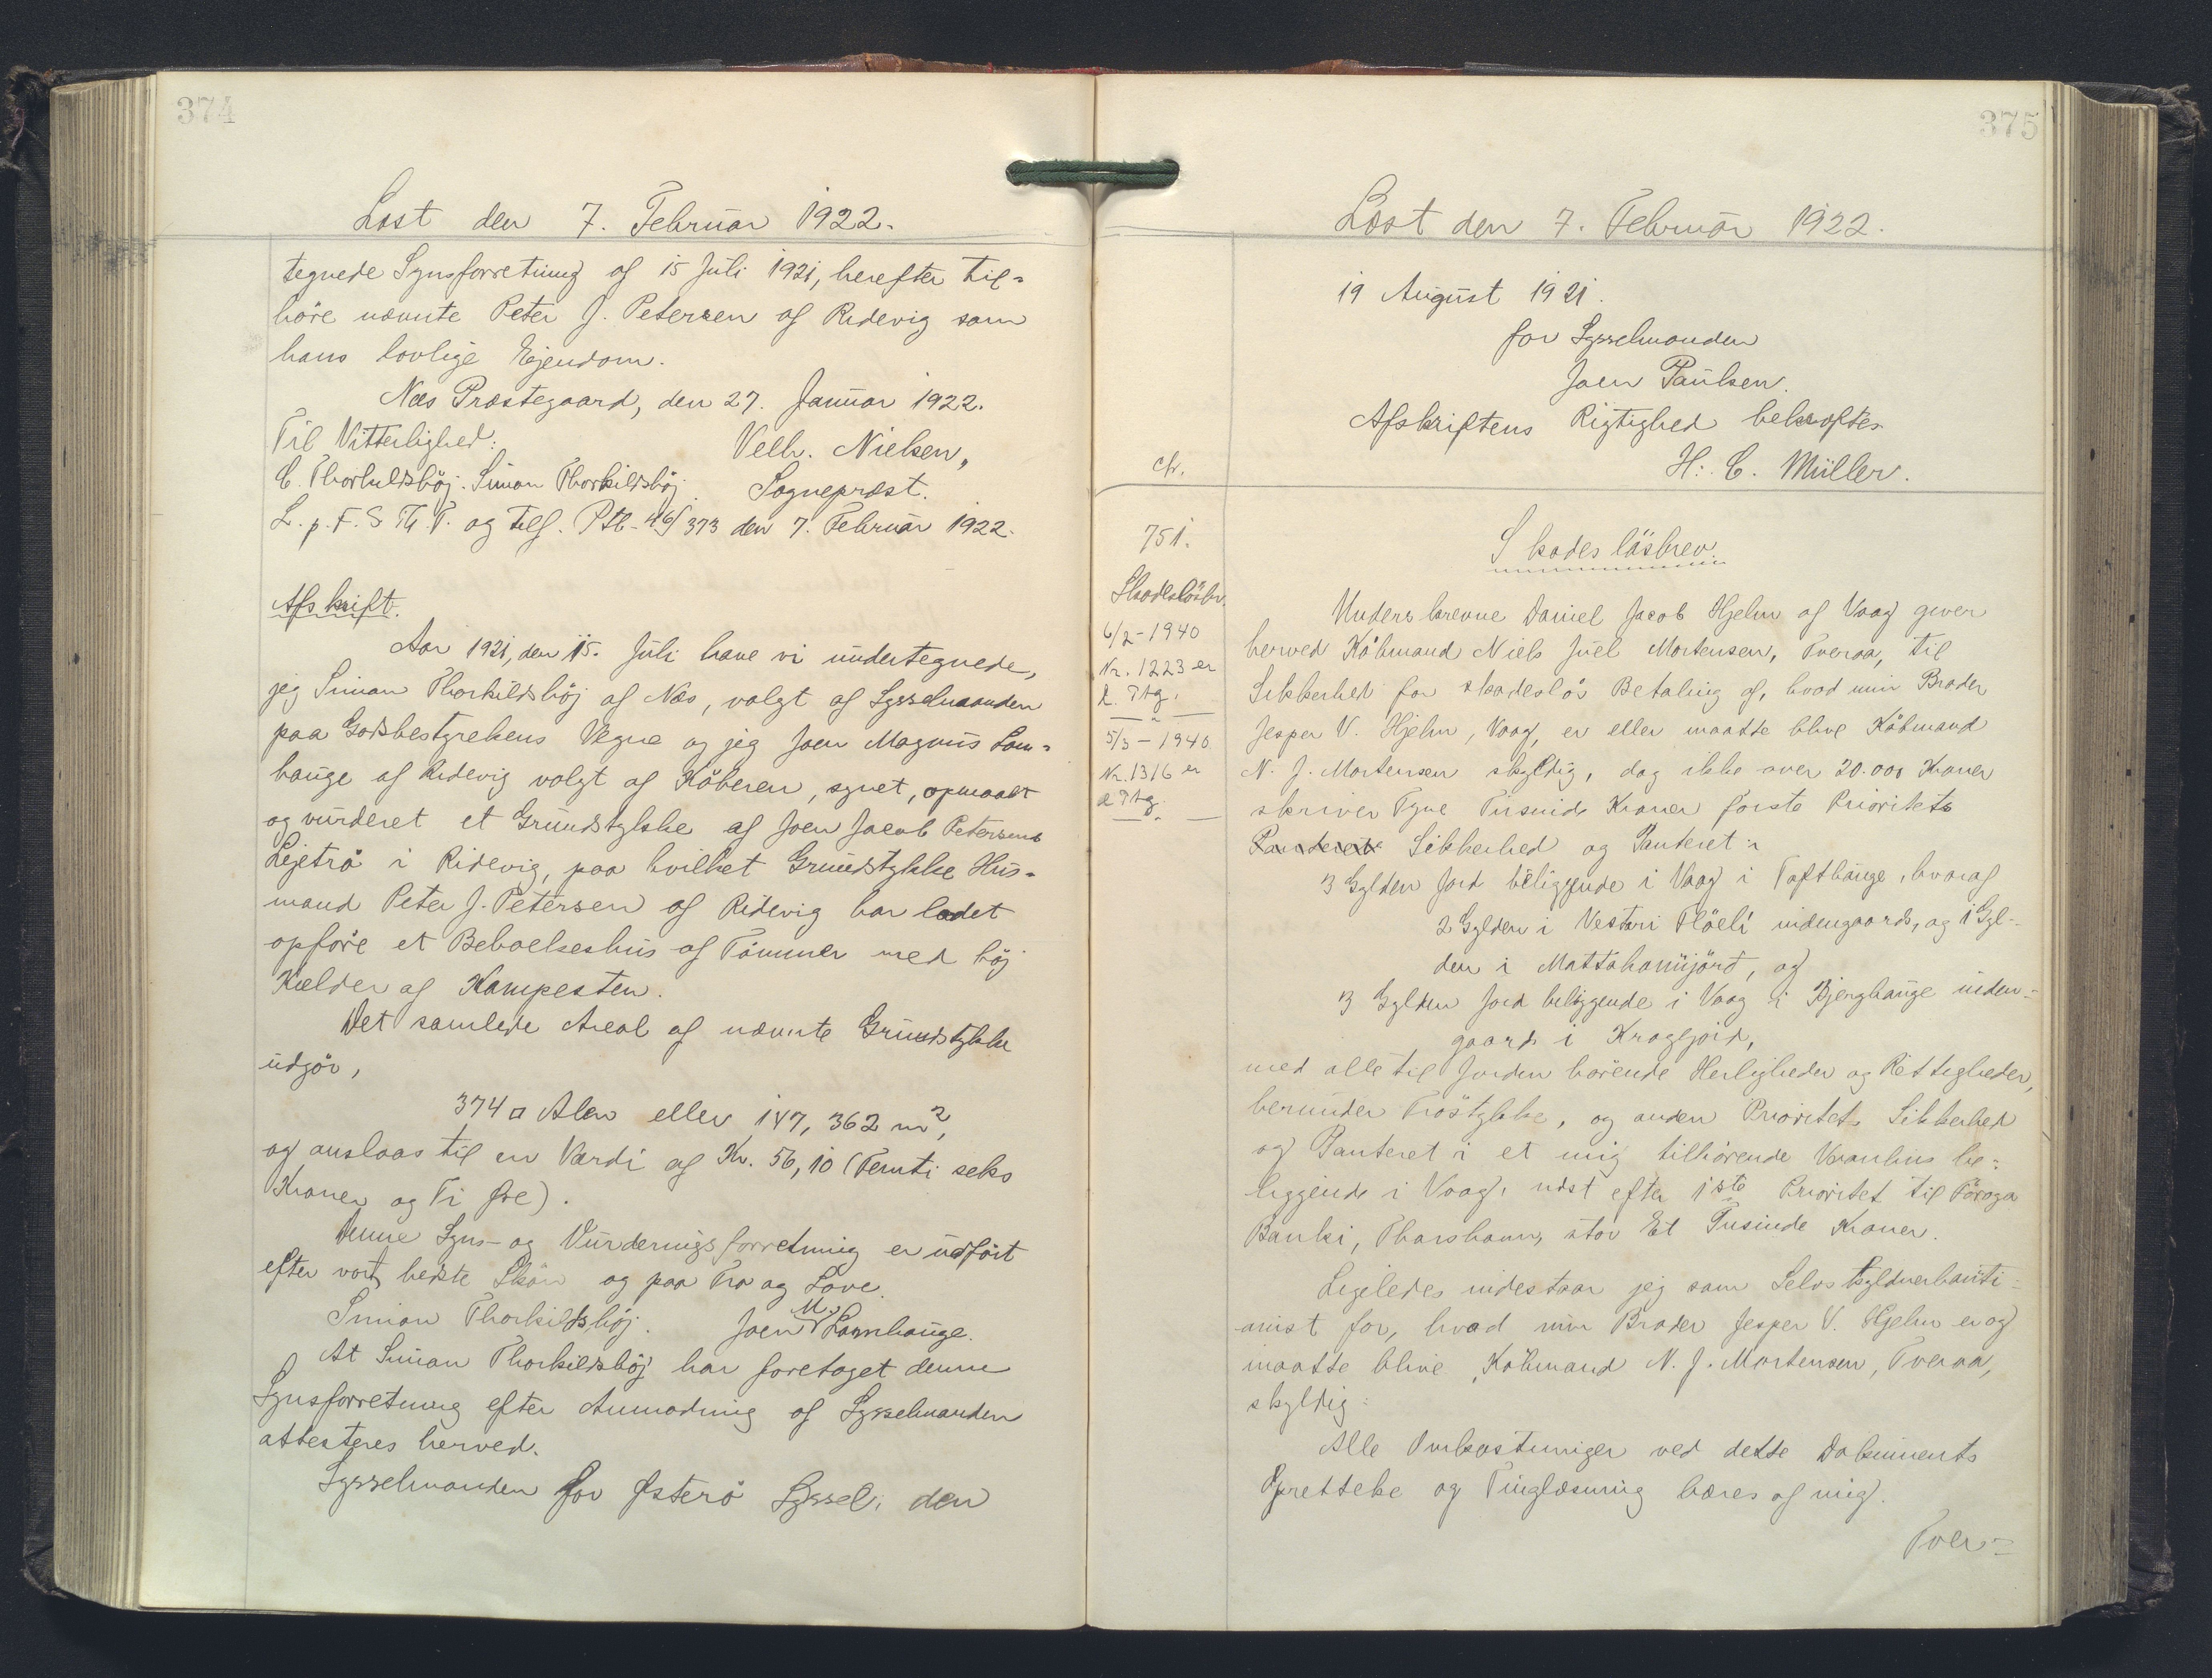 374
Læst den 7. Februar 1922.
tegnede Synsforretning af 15 Juli 1921, herefter til=
höre nævnte Peter J. Petersen af Ridevig som
hans lovlige Ejendom.
Næs Præstegaard, den 27. Januar 1922.
Til Vitterlighed:
Velh. Nielsen,
C. Thorkildshöj. Simon Thorkildshöj.
Sognepræst.
L. p. F. S. Th T. og tilf. Ptb- 46/373 den 7. Februar 1922.
Afskrift.
Aar 1921, den 15. Juli have vi undertegnede,
jeg Simon Thorkildshöj af Næs, valgt af Sysselmanden
paa Godsbestyrelsens Vegne og jeg Joen Magnus Lam=
hauge af Ridevig valgt af Köberen, synet, opmaalt
og vurderet et Grundstykke af Joen Jacob Petersens
Lejetrö i Ridevig, paa hvilket Grundstykke Hus=
mand Peter J. Petersen af Ridevig har ladet
opföre et Beboelseshus af Tömmer med höj
Kælder af Kampesten.
Det samlede Areal af nævnte Grundstykke
udgör,
374 □ Alen eller 147,362 m²,
og anslaas til en Værdi af Kr. 56,10 (Femti seks
Kroner og Ti Øre).
Denne Syns- og Vurderingsforretning er udfört
efter vort bedste Skön og paa Tro og Love.
Simon Thorkildshöj. Joen M. Lamhauge.
At Simon Thorkildshöj har foretaget denne
Synsforretning efter Anmodning af Sysselmanden
attesteres herved.
Sysselmanden for Østerö Syssel, den
375
Læst den 7. Februar 1922.
19 August 1921.
for Sysselmanden
Joen Paulsen.
Afskriftens Rigtighed bekræftes
H: C. Müller.
ch.
751.
Skadeslösbr.
6/2-1940
Nr. 1223 er
l. Ttg.
5/3-1940
Nr. 1316 er
l Ttg.
Skadeslösbrev.
Underskrevne Daniel Jacob Hjelm af Vaag giver
herved Köbmand Niels Juel Mortensen, Tveraa, til
Sikkerhed for skadeslös Betaling af, hvad min Broder
Jesper V. Hjelm, Vaag, er eller maatte blive Köbmand
N. J. Mortensen skyldig, dog ikke over 20.000 Kroner
skriver Tyve Tusinde Kroner förste Prioritets
Panteret Sikkerhed og Panteret:
3 Gylden Jord beliggende i Vaag i Toftbauge, hvoraf
2 Gylden i Vestari Flöeli indengaards, og 1 Gyl=
den i Mattahanüjörd, og
3 Gylden Jord beliggende i Vaag i Bjergbauge inden=
gaards i Kragjörd,
med alle til Jorden hörende Herligheder og Rettigheder,
herunder Tröstykke, og anden Prioritets Sikkerhed
og Panteret i et mig tilhörende Vaanhus be=
liggende i Vaag, næst efter 1ste Prioritet til Föroya
Banki, Thorshavn, stor Et Tusinde Kroner.
Ligeledes indestaar jeg som Selvskyldnerkauti=
onist for, hvad min Broder Jesper V. Hjelm er og
maatte blive Köbmand N. J. Mortensen, Tveraa,
skyldig:
Alle Omkostninger ved dette Dokuments
Oprettelse og Tinglæsning bæres af mig.
Tver=